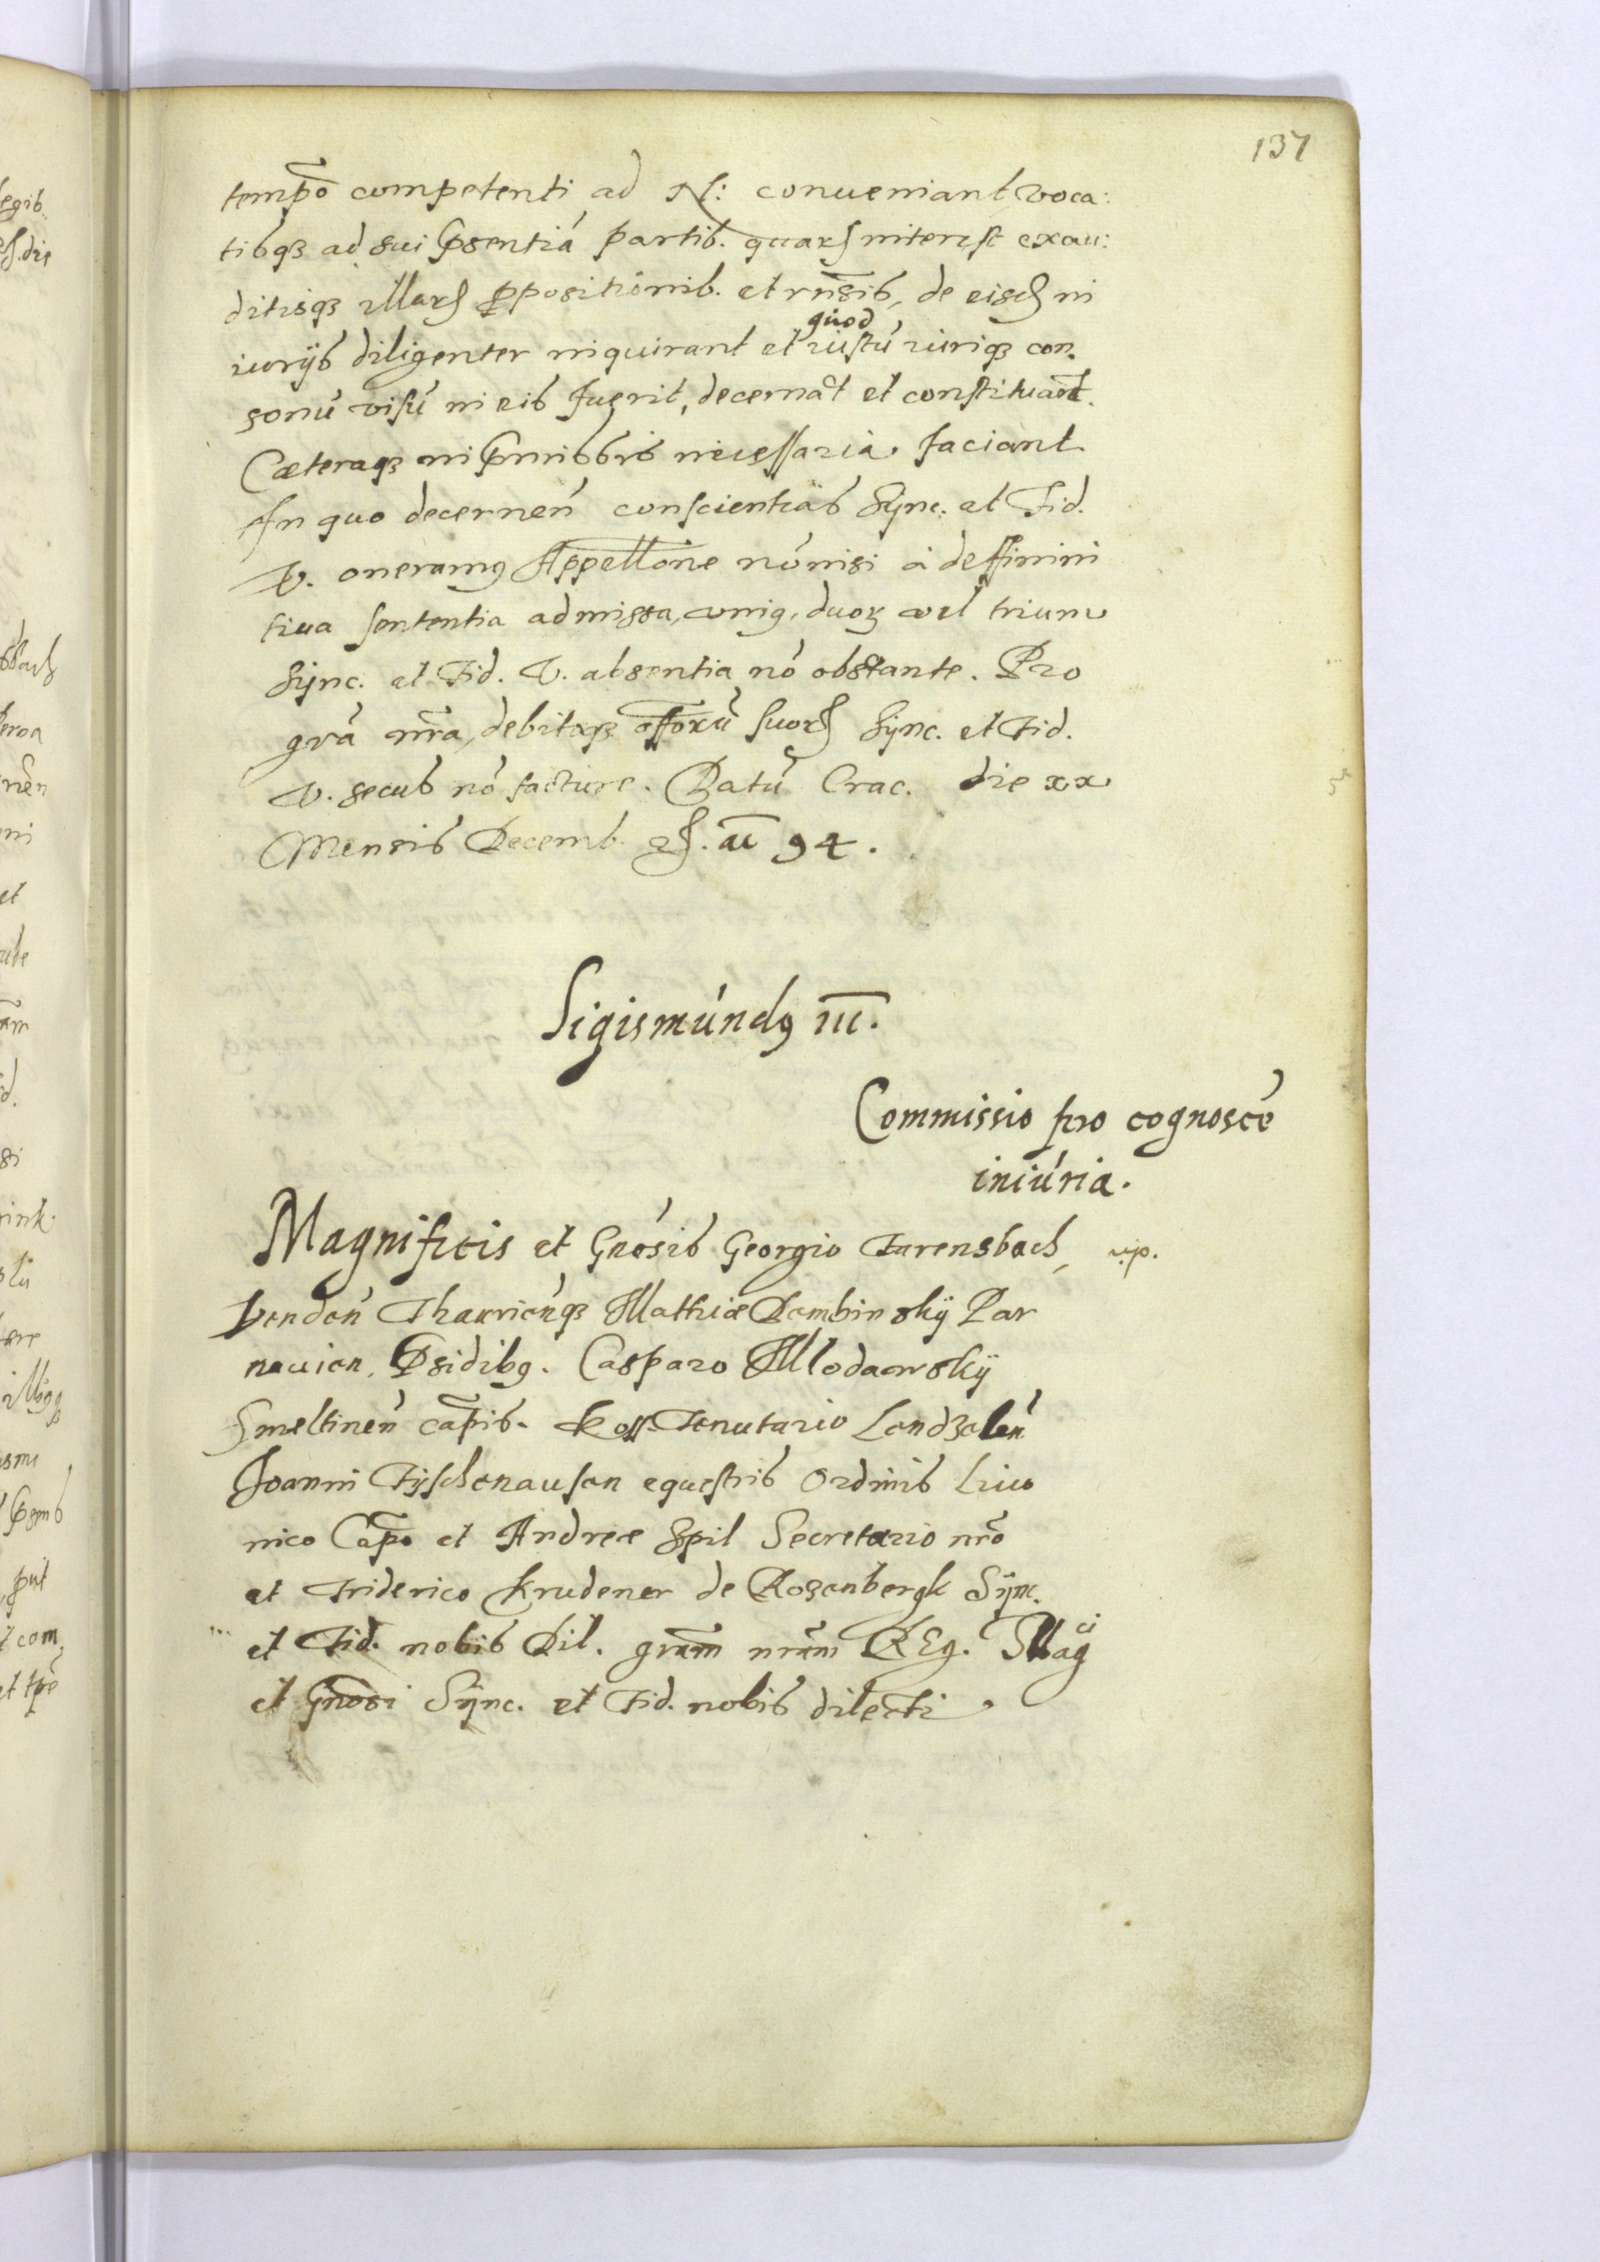 137
tempõ competenti ad N: conueniant, voca:
tibq₃ ad sui p̃sentiá partib. quarꝝ interest exau:
ditisq₃ illarꝝ ꝓpositionib. et rñsis, de eisd in
iurijs diligenter inquirant et quod iustú iuriq₃ con.
sonú visú in eis fuerit, decernãt et constituãt.
Cæteraq₃ in p̃missis necessaria faciant
In quo decernén conscientias Sync. et Fid.
V. oneramꝰ Appellõne nó nisi á deffinini
tiua sententia admissa, uniꝰ, duorꝝ vel trium
Sync. et Fid. V. absentia nó obstante. Pro
grá nr̃a, debitoq₃ offõrũ suorꝝ Sync. et Fid.
V. secus nó facture. Datú Crac. die xx
Mensis Decemb. aũ 94.
Sigismúndꝰ III.
Commissio pro cognoscé
iniúria.
Magnificis et Gnósis Georgio Farensbach, v.p.
Vendeń Thareieńq₃ Mathiæ Dembinskÿ Par
nauien. P̃sidibꝰ. Casparo Mlodawskÿ
Smeltineń cap̃is. Koss Tenutario Landzeleń
Joanni Tÿschenausen equestris Ordinis Liuo
nico Cap̃o et Andreæ Spil Secretario nr̃o
et Friderico Krudener de Rosenbergk Sÿnc.
et Fid. nobis Dil. gram̃ nram̃ REg. Mag̃ci
et Gnõsi Sÿnc. et Fid. nobis dilecti.